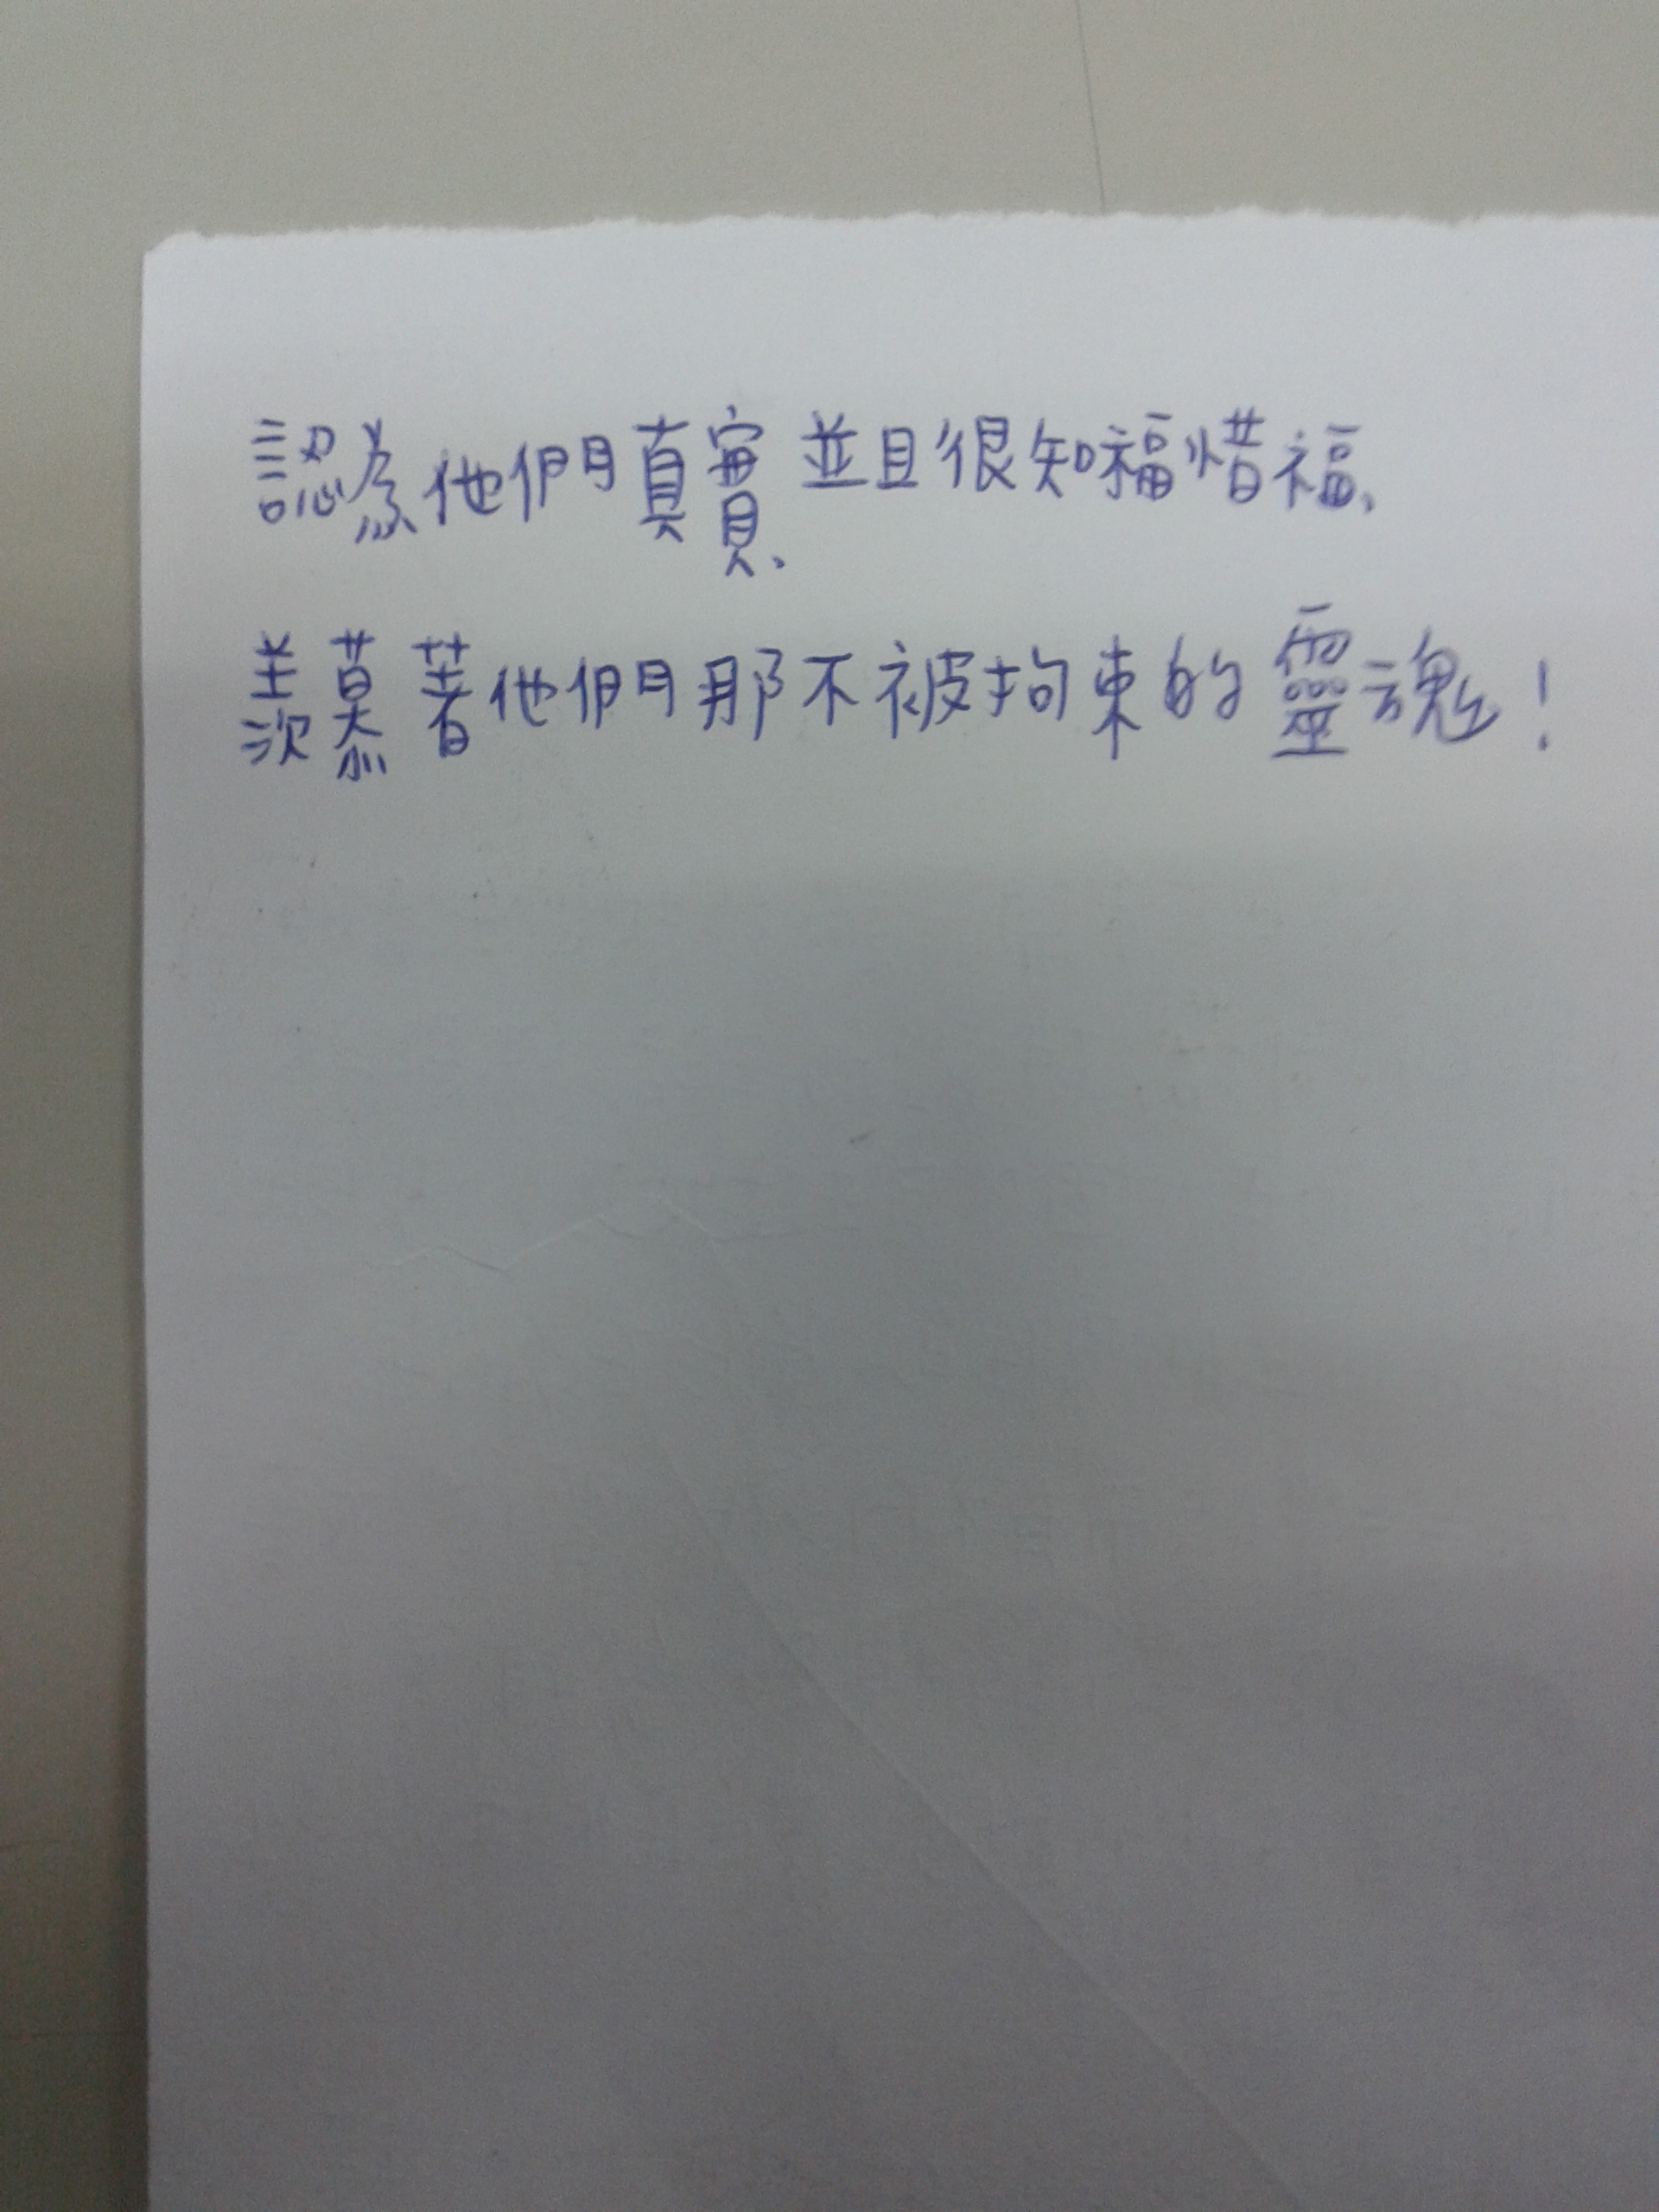 認為他們真實、並且很知福惜福、
羨慕著他們那不被拘束的靈魂!